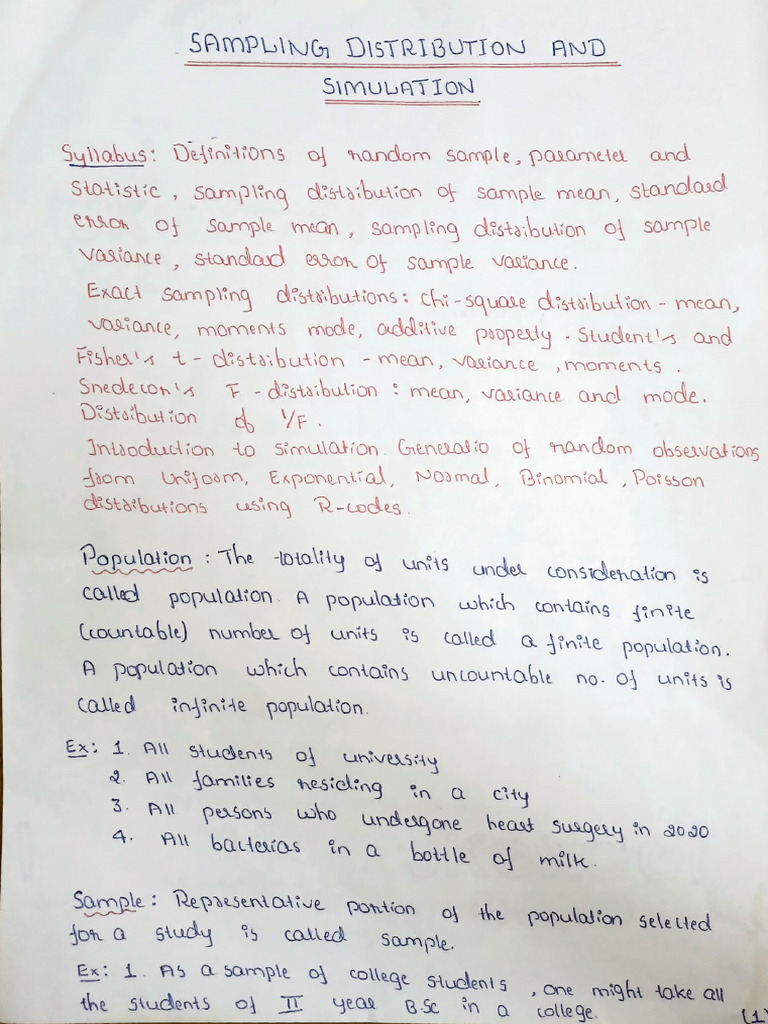 SAMPLING DISTRIBUTION AND
SIMULATION
Syllabus: Definitions of random sample, parameter and
statistic, sampling distribution of sample mean, standard
error of sample mean, sampling distribution of sample
variance, standard error of sample variance.
Exact sampling distributions: Chi-square distribution - mean,
variance, moments mode, additive property. Student's and
Fisher's t-distribution - mean, variance, moments.
Snedecor's F-distribution: mean, variance and mode.
Distribution of 1/F.
Introduction to simulation. Generatio of random observations
from Uniform, Exponential, Normal, Binomial, Poisson
distributions using R-codes.
Population: The totality of units under consideration is
called population. A population which contains finite
(countable) number of units is called a finite population.
A population which contains uncountable no. of units is
called infinite population.
Ex: 1. All students of university
2. All families residing in a city
3. All persons who undergone heart surgery in 2020
4. All bacterias in a bottle of milk.
Sample: Representative portion of the population selected
for a study is called sample.
Ex: 1. As a sample of college students, one might take all
the students of II year B.Sc in a college.
(1)